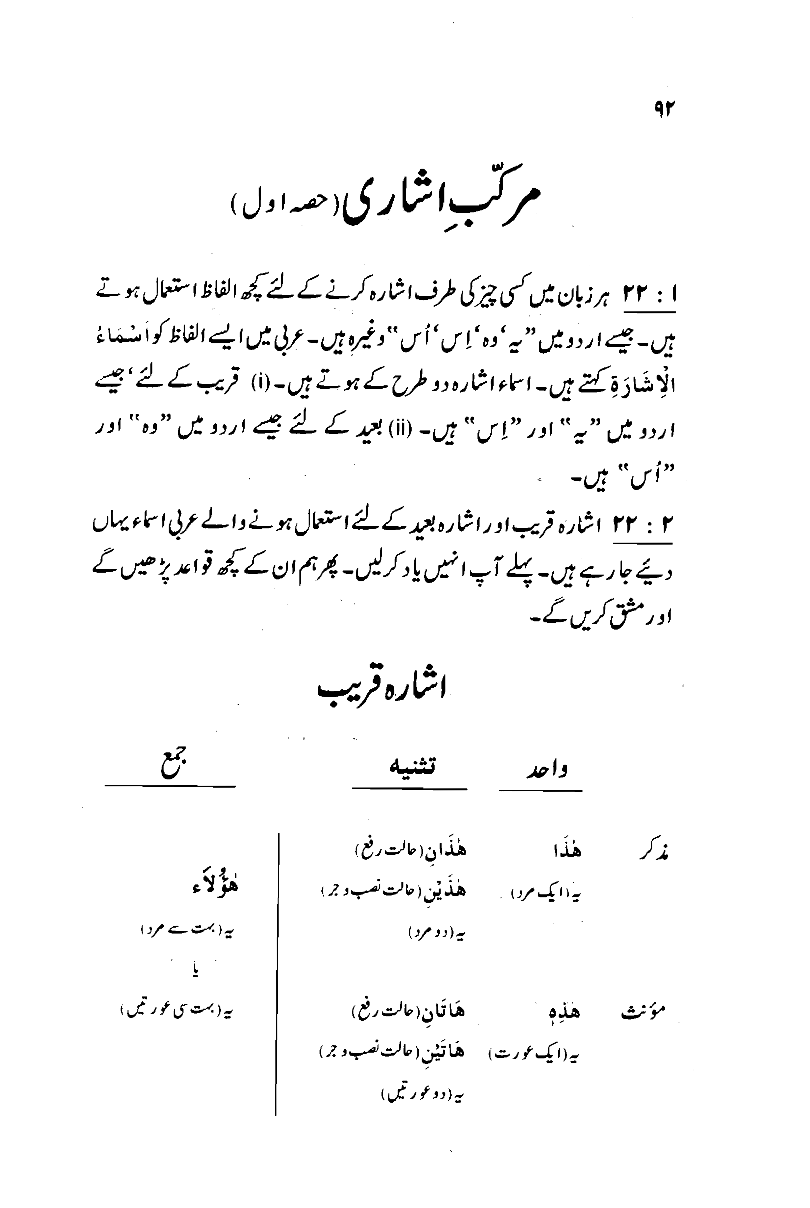 ۹۲
مرکّبِ اشاری (حصہ اول)
۲۲ : ۱ ہر زبان میں کسی چیز کی طرف اشارہ کرنے کے لئے کچھ الفاظ استعمال ہوتے
ہیں۔ جیسے اردو میں "یہ‘ وہ‘ اِس‘ اُس" وغیرہ ہیں۔ عربی میں ایسے الفاظ کو اَسْمَاءُ
الْاِشَارَۃِ کہتے ہیں۔ اسماء اشارہ دو طرح کے ہوتے ہیں۔ (i) قریب کے لئے‘ جیسے
اردو میں "یہ" اور "اِس" ہیں۔ (ii) بعید کے لئے جیسے اردو میں "وہ" اور
"اُس" ہیں۔
۲۲ : ۲ اشارہ قریب اور اشارہ بعید کے لئے استعمال ہونے والے عربی اسماء یہاں
دیئے جا رہے ہیں۔ پہلے آپ انہیں یاد کرلیں۔ پھر ہم ان کے کچھ قواعد پڑھیں گے
اور مشق کریں گے۔
اشارہ قریب
واحد تثنیہ جمع
مذکر هٰذَا هٰذَانِ (حالت رفع)
یہ (ایک مرد) هٰذَيْنِ (حالت نصب و جر) هٰؤُلَاءِ
یہ (دو مرد) یہ (بہت سے مرد)
یا
مؤنث هٰذِهٖ هَاتَانِ (حالت رفع) یہ (بہت سی عورتیں)
یہ (ایک عورت) هَاتَيْنِ (حالت نصب و جر)
یہ (دو عورتیں)